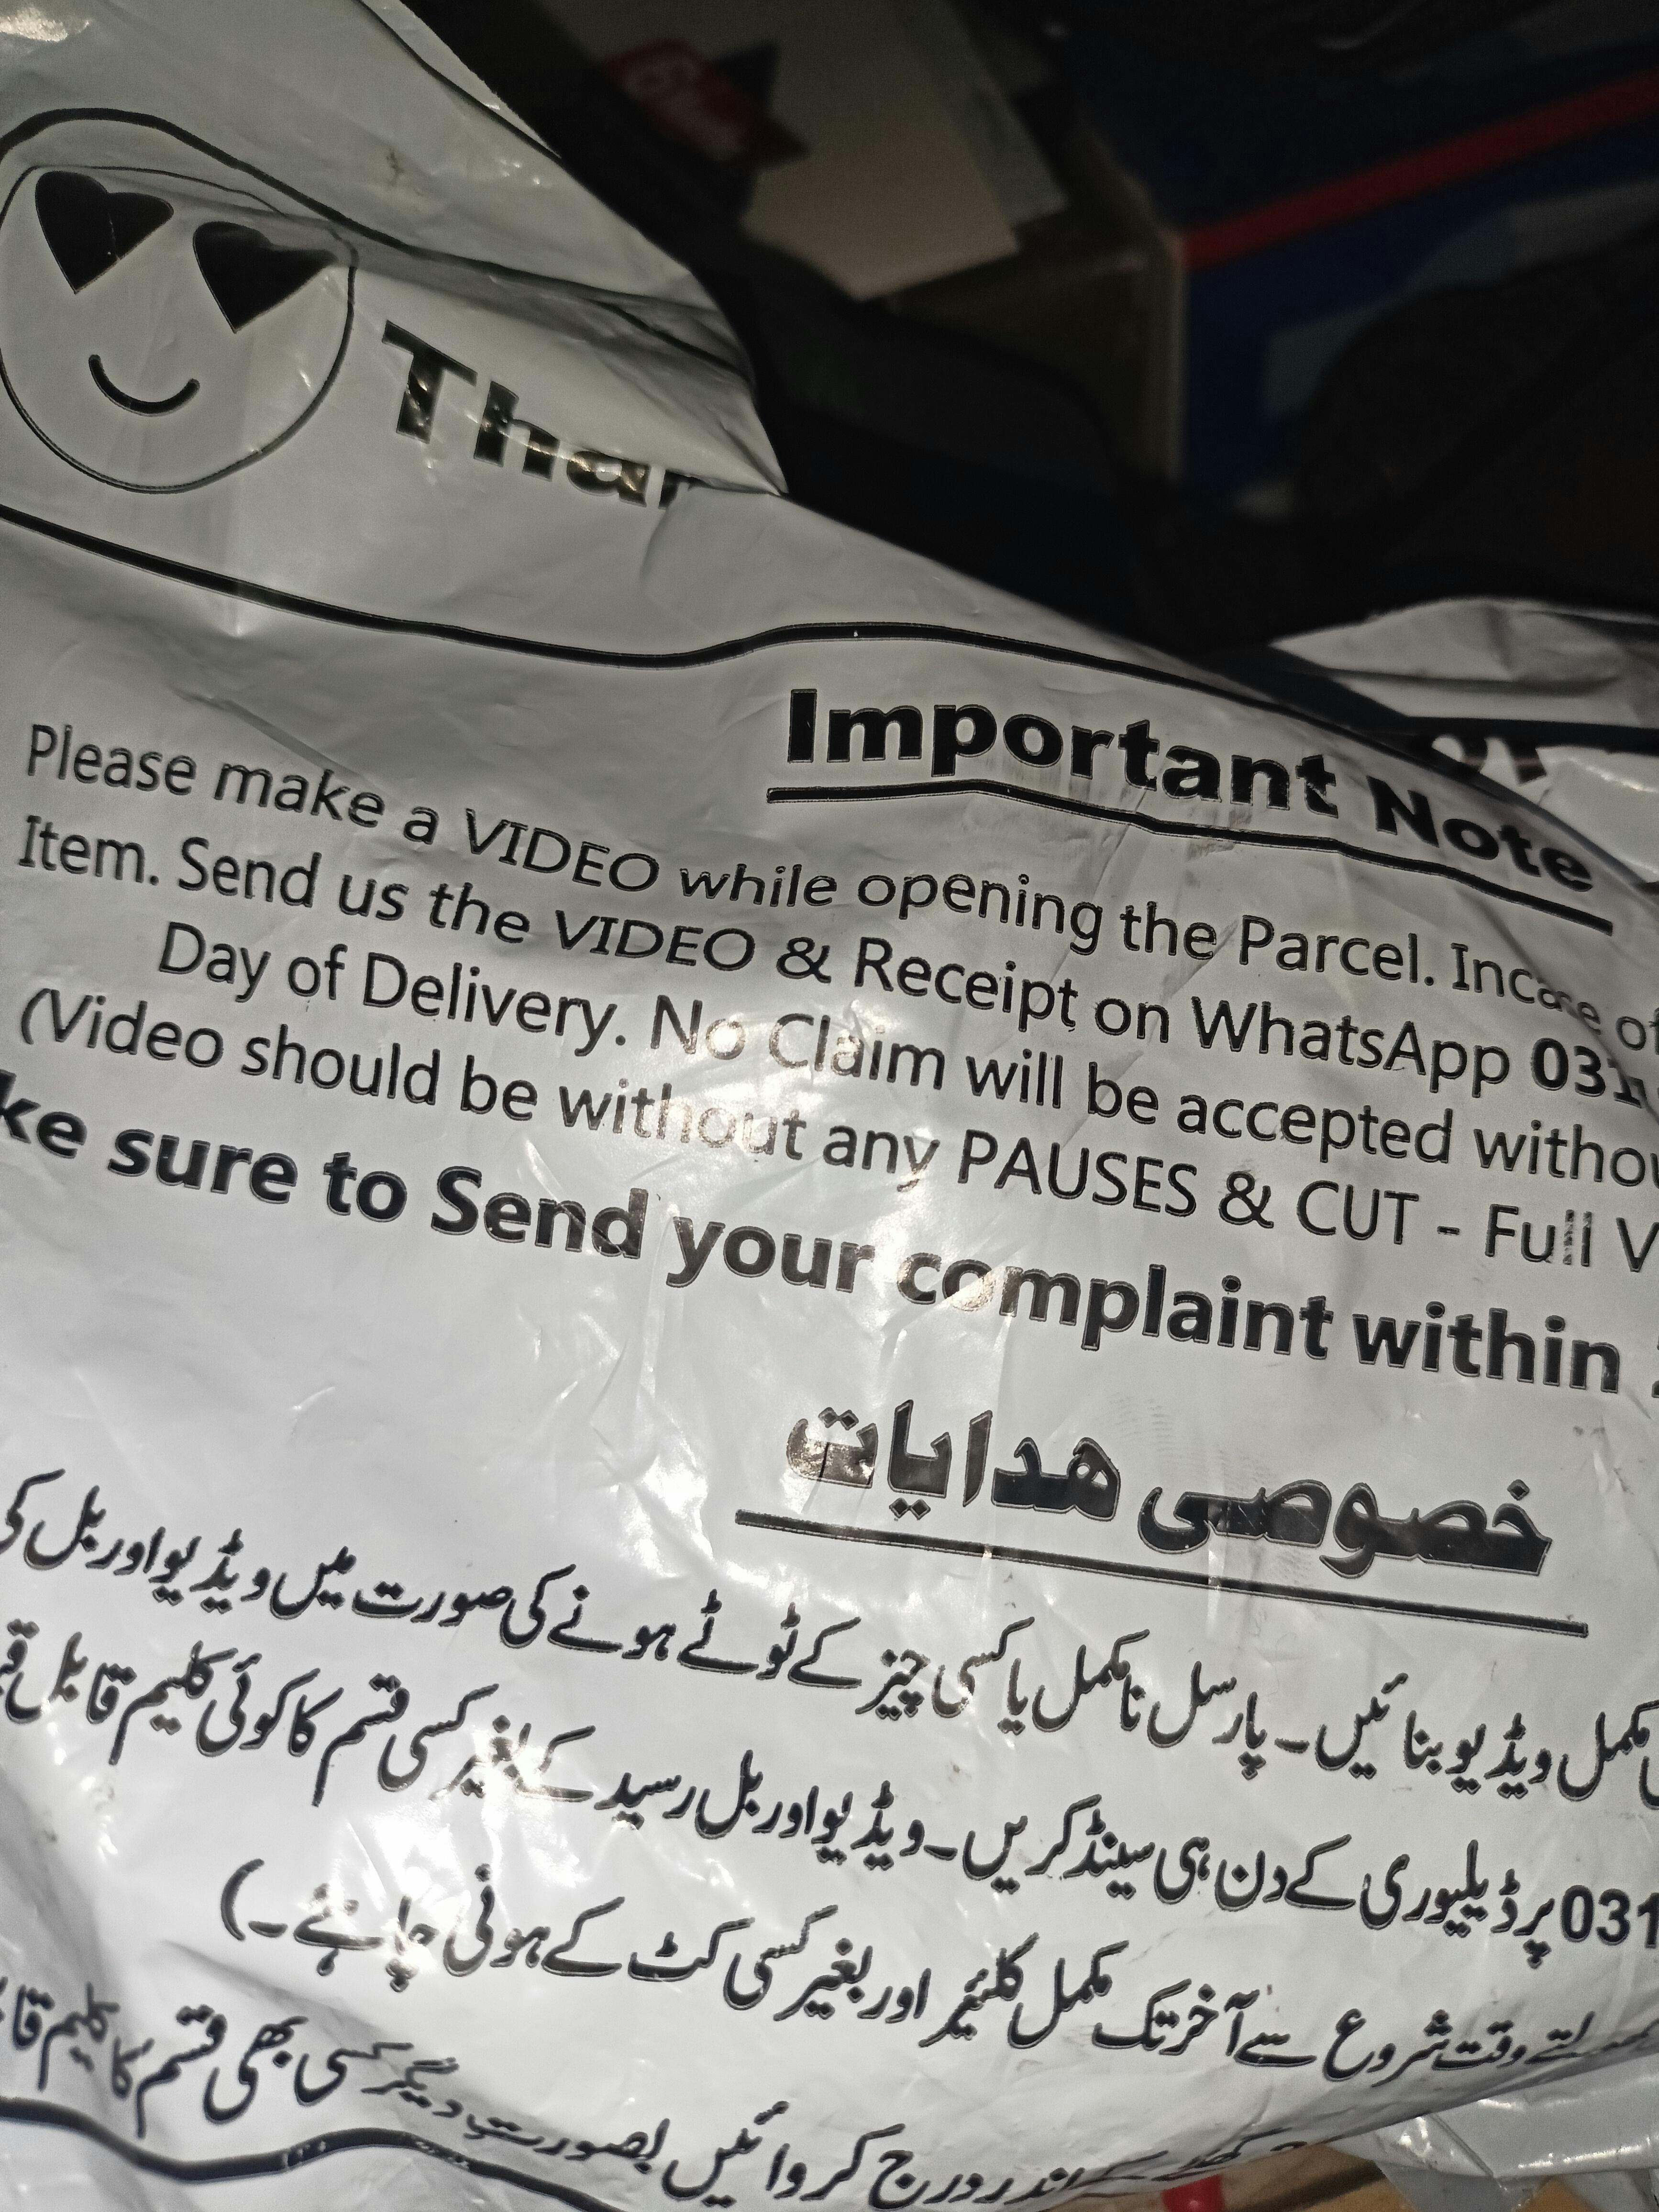 Than
Important Note
Please make a VIDEO while opening the Parcel. Incase of
Item. Send us the VIDEO & Receipt on WhatsApp 031
Day of Delivery. No Claim will be accepted withou
(Video should be without any PAUSES & CUT - Full V
ke sure to Send your complaint within
خصوصی ھدایات
مکمل ویڈیو بنائیں۔ پارسل نامکمل یا کسی چیز کے ٹوٹے ہونے کی صورت میں ویڈیو اور بل کی
031 پر ڈیلیوری کے دن ہی سینڈ کریں۔ ویڈیو اور بل رسید کے بغیر کسی قسم کا کوئی کلیم قابل
وقت شروع سے آخر تک مکمل کلئیر اور بغیر کسی کٹ کے ہونی چاہئے۔)
اندر درج کروائیں بصورت دیگر کسی بھی قسم کا کلیم قا